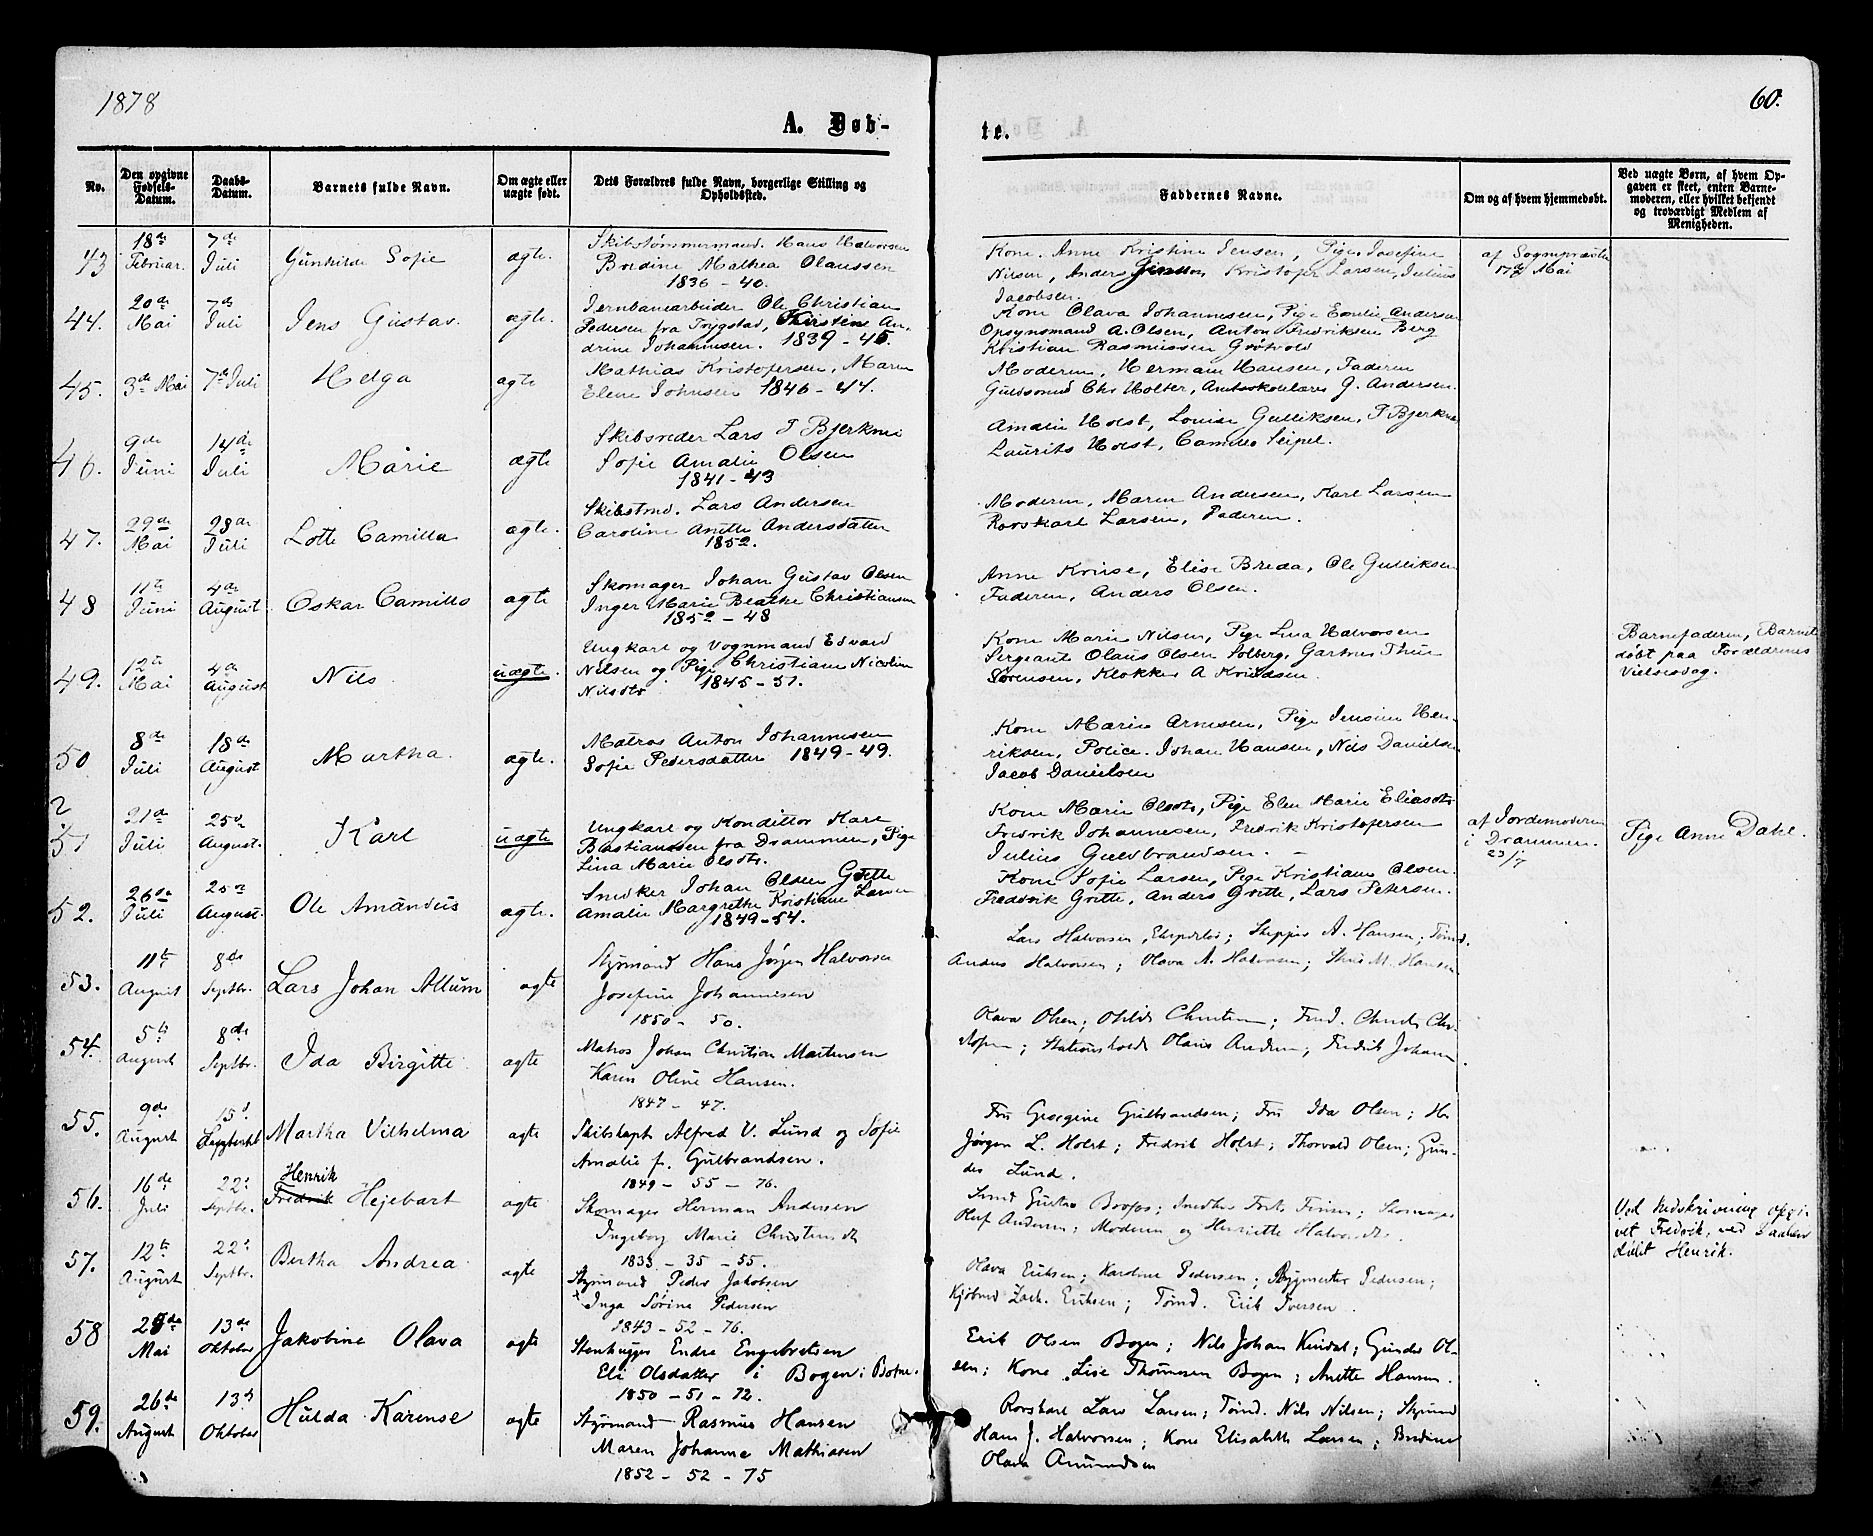 1878
60.
A. Døb-
te.
No.
Den opgivne Fødsels-Datum.
Daabs-Datum.
Barnets fulde Navn.
Om ægte eller uægte født.
Dets Forældres fulde Navn, borgerlige Stilling og Opholdssted.
Faddernes Navne.
Om og af hvem hjemmedøbt.
Ved uægte Børn, af hvem Op-
gaven er skeet, enten Barne-
moderen, eller hvilket bekjendt
og troværdigt Medlem af
Menigheden.
43 18de Februar. 7de Juli Gunhilde Sofie ægte.
Skibstømmermand. Hans Halvorsen
Bordine Mathea Olaussen
1836 - 40.
Kone. Anne Kristine Jensen, Pige Josefine
Nilsen, Anders Jensen, Kristofer Larsen, Julius
Jacobsen.
af Sognepræsten
17de Mai
44. 20de Mai 7de Juli Jens Gustav. ægte.
Jernbanearbeider Ole Christian
Pedersen fra Trygstad, Kirstine An-
drine Johannesen. 1839 - 45.
Kone Olava Johannesen, Pige Emilie Andersen
Opsynsmand A. Olsen, Anton Fredriksen Berg
Kristian Rasmussen Grøtvold
45. 3de Mai 7de Juli Helga ægte
Mathias Kristofersen, Maren
Elene Johnsen 1846 - 44.
Moderen, Hermain Hansen, Faderen
Guldsmed Chr. Holter, Amtsskolelærer J. Andersen.
46. 9de Juni 14de Juli Marie ægte
Skibsreder Lars J Bjerknes
Sofie Amalie Olsen
1841 - 43
Amalie Holst, Louise Gulliksen, J Bjerknes
Laurits Holst, Camilla Seipel.
47. 29de Mai 28de Juli Lotte Camilla ægte.
Skibstmd. Lars Andersen
Caroline Anette Andersdatter
1852.
Moderen, Maren Andersen, Karl Larsen
Rorskarl Larsen, Faderen.
48 11te Juni 4de August Oskar Camillo ægte
Skomager Johan Gustav Olsen
Inger Marie Beathe Christiansen
1852 - 48
Anne Kruse, Elise Breda, Ole Gulliksen
Faderen, Anders Olsen.
49. 12te Mai 4de August Nils uægte.
Ungkarl og Vognmand Edvard
Nilsen og Pige Christiane Nicoline
Nilsdtr 1845 - 51.
Kone Marie Nilsen, Pige Lina Halvorsen
Sergeant Olaus Olsen Solberg, Gartner Thur
Sørensen, Klokker A Knudsen.
Barnefaderen, Barnet
døbt paa Forældrenes
Vielsesdag.
50 8de Juli 18de August Martha. ægte.
Matros Anton Johannesen
Sofie Pedersdatter 1849 - 49.
Kone Maren Arnesen, Pige Jensine Hen-
riksen, Police. Johan Hansen, Nils Danielsen
Jacob Danielsen
2
51 21de Juli 25de August. Karl uægte
Ungkarl og Konditor Karl
Bastianssen fra Drammen, Pige
Lina Marie Olsdtr.
Kone Marie Olsdtr, Pige Elen Marie Eliasdtr
Fredrik Johannesen, Fredrik Kristofersen
Julius Guldbrandsen. -
af Jordemoderen
i Drammen.
23/7
Pige Anne Dahl.
52. 26de Juli 25de August. Ole Amandus ægte.
Snedker Johan Olsen Grette
Amalie Margrethe Kristiane Larsen
1849 - 54.
Kone Sofie Larsen, Pige Kristiane Olsen.
Fredrik Grette, Anders Grette, Lars Petersen.
53. 11te August 8de Septbr. Lars Johan Allum ægte
Styrmand Hans Jørgen Halvorsen
Josefine Johannesen
1850 - 50.
Lars Halvorsen, ; Skipper A. Hansen; Tømd.
Anders Halvorsen; Olava A. Halvorsen; M. Hansen
54. 5te August 8de Septbr. Ida Birgitte ægte
Matros Johan Christian Martensen
Karen Oline Hansen.
1847 - 47.
Olava Olsen; ; Tmd. Chri-
stopher; Olaus Andersen; Fredrik Johansen.
55. 9de August 15d. Septbr Martha Vilhelma ægte
Skibskapt Alfred V. Lund og Sofie
Amalie f. Gulbrandsen.
1849 - 55 - 76.
Fru Georgine Gulbrandsen; Fru Ida Olsen; Hr
Jørgen L. Holst; Fredrik Holst; Thorvald Olsen; Gun-
der Lund.
56. 16de Juli 22d Septbr. Henrik Fredrik Hejebart ægte
Skomager Herman Andersen
Ingeborg Marie Christensdtr
1833 - 35 - 55.
Smed Gustav ; Snedker ; Skomager
Oluf Andersen; Moderen og Henriette Halvorsdtr.
Ved Indskrivning opgi-
vet Fredrik, ved Daaben
døbt Henrik.
57. 12te August 22d Septbr. Bertha Andrea. ægte
Styrmand Peder Jakobsen
Inga Sørine Pedersen
1843 - 52 - 76.
Olava Eriksen; Karoline Pedersen; Bygmester Pedersen;
Kjøbmd Zach. Eriksen; Tømd. Erik Iversen.
58 25de Mai 13de Oktober Jakobine Olava ægte
Stenhugger Endre Engebretsen
Eli Olsdatter i Bogen i Botne.
1850 - 51 - 72.
Erik Olsen Bogen; Nils Johan Kindal; Gunder Ol-
sen; Kone Lise Thoresen Bogen; Anette Hansen.
59. 26de August 13d Oktober Hulda Karense ægte
Styrmand Rasmus Hansen
Maren Johanne Mathiasen
1852 - 52 - 75
Rorskarl Lars Larsen; Tømd. Nils Nilsen; Styrmd
Hans J. Halvorsen; Kone Elisabeth Larsen; Bredine
Olava Amundsen